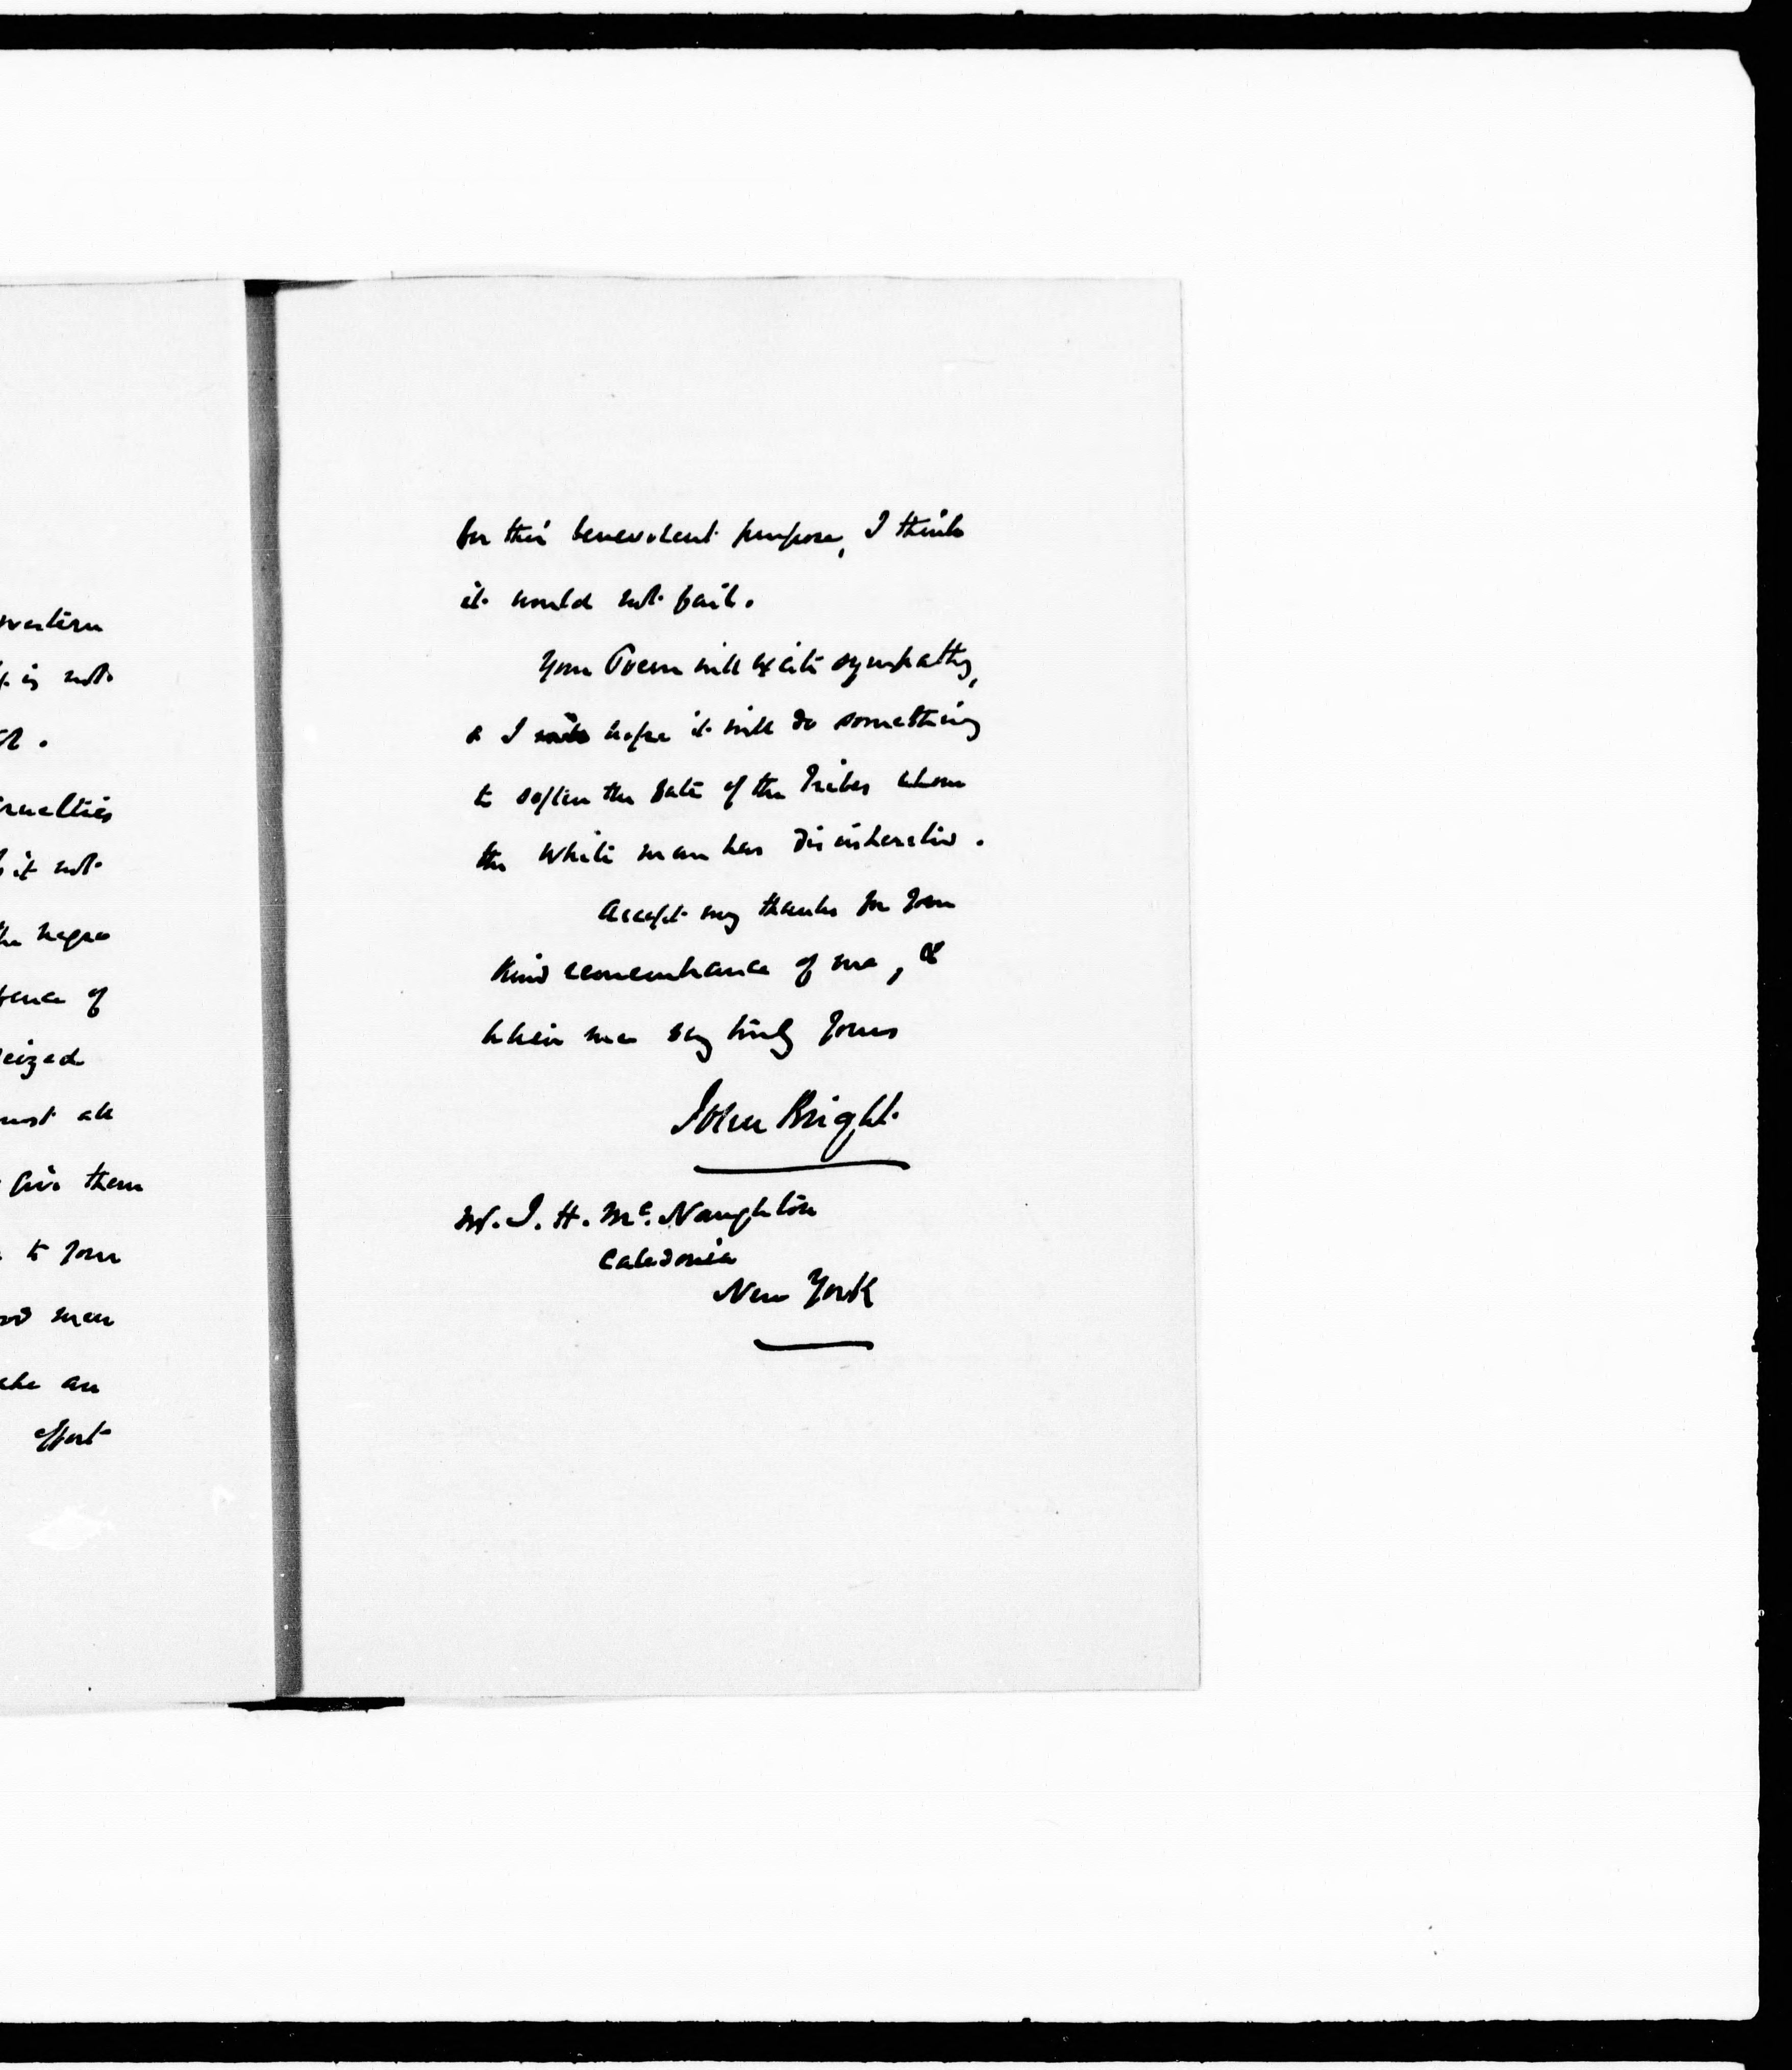 western
is not
cruelties
it not
the negro
of
seized
all
give them
to your
men
an
effort
for this benevolent purpose, I think
it would not fail.
Your Poem will excite sympathy,
& I hope it will do something
to soften the fate of the Tribes whom
the White man has disinherited.
Accept my thanks for your
kind remembrance of me, &
believe me very truly yours
John Bright.
Mr. J. H. Mc. Naughton
Caledonia
New York